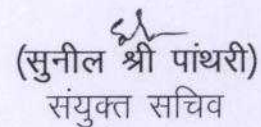 (सुनील श्री पांथरी)
संयुक्त सचिव